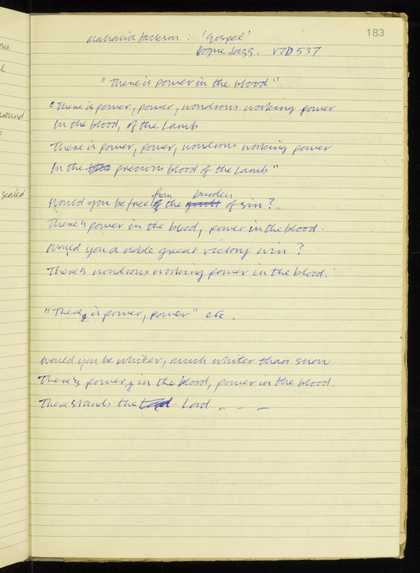 183
Mahalia Jackson : 'Gospel'
Vogue Jazz. VJD 537
"There is power in the blood"
"There is power, power, wondrous working power
In the blood, of the Lamb
There is power, power, wondrous working power
In the precious blood of the Lamb"
Would you be free from the burden of sin?
There's power in the blood, power in the blood.
Would you a noble great victory win?
There's wondrous working power in the blood.
"There is power, power" etc.
Would you be whiter, much whiter than snow
There's power, in the blood, power in the blood
There stands the Lord Lord - - -
sealed